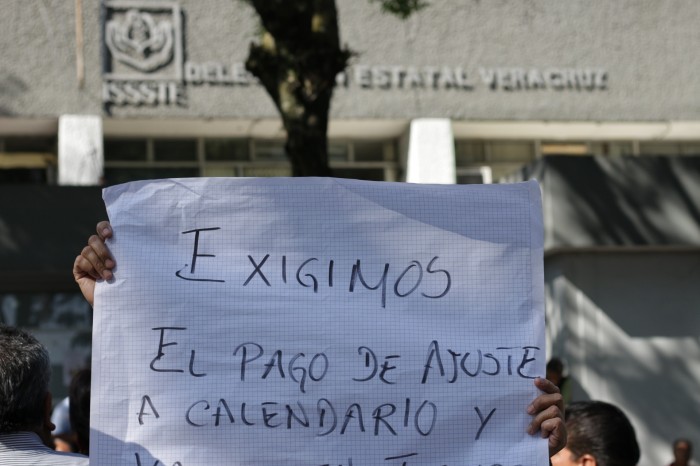 ISSSTE
DELEGACIÓN ESTATAL VERACRUZ
EXIGIMOS
EL PAGO DE AJUSTE
A CALENDARIO Y